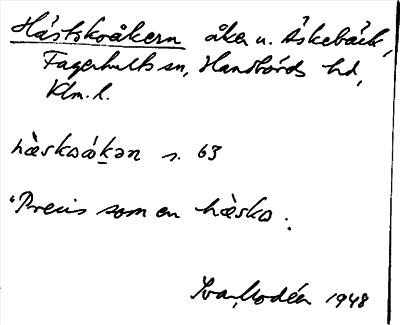 Hästskoåkern åker u. Äskebäck,
Fagerhults sn, Handbörds hd,
Klm. l.
hæskoåkən s. 63
"Precis som en hæsko.
Ivar Modéer 1948